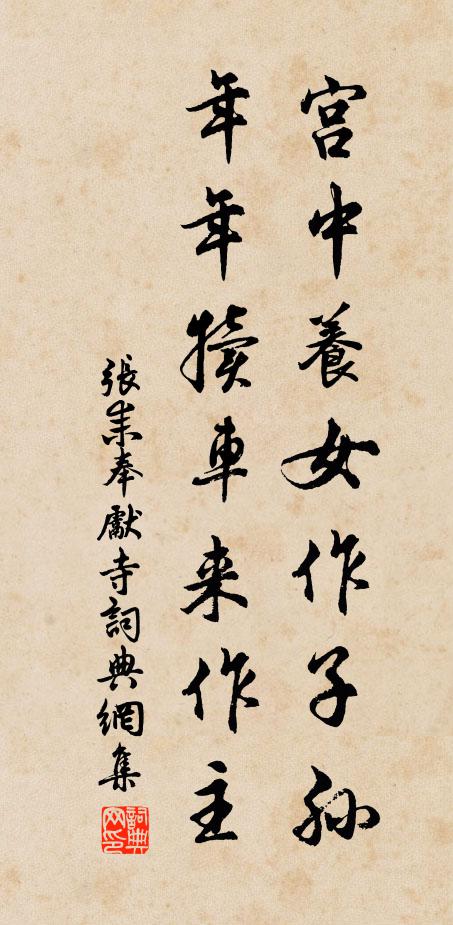 宫中養女作子孫
年年犢車来作主
張耒奉獻寺詞典網集
詞典网印